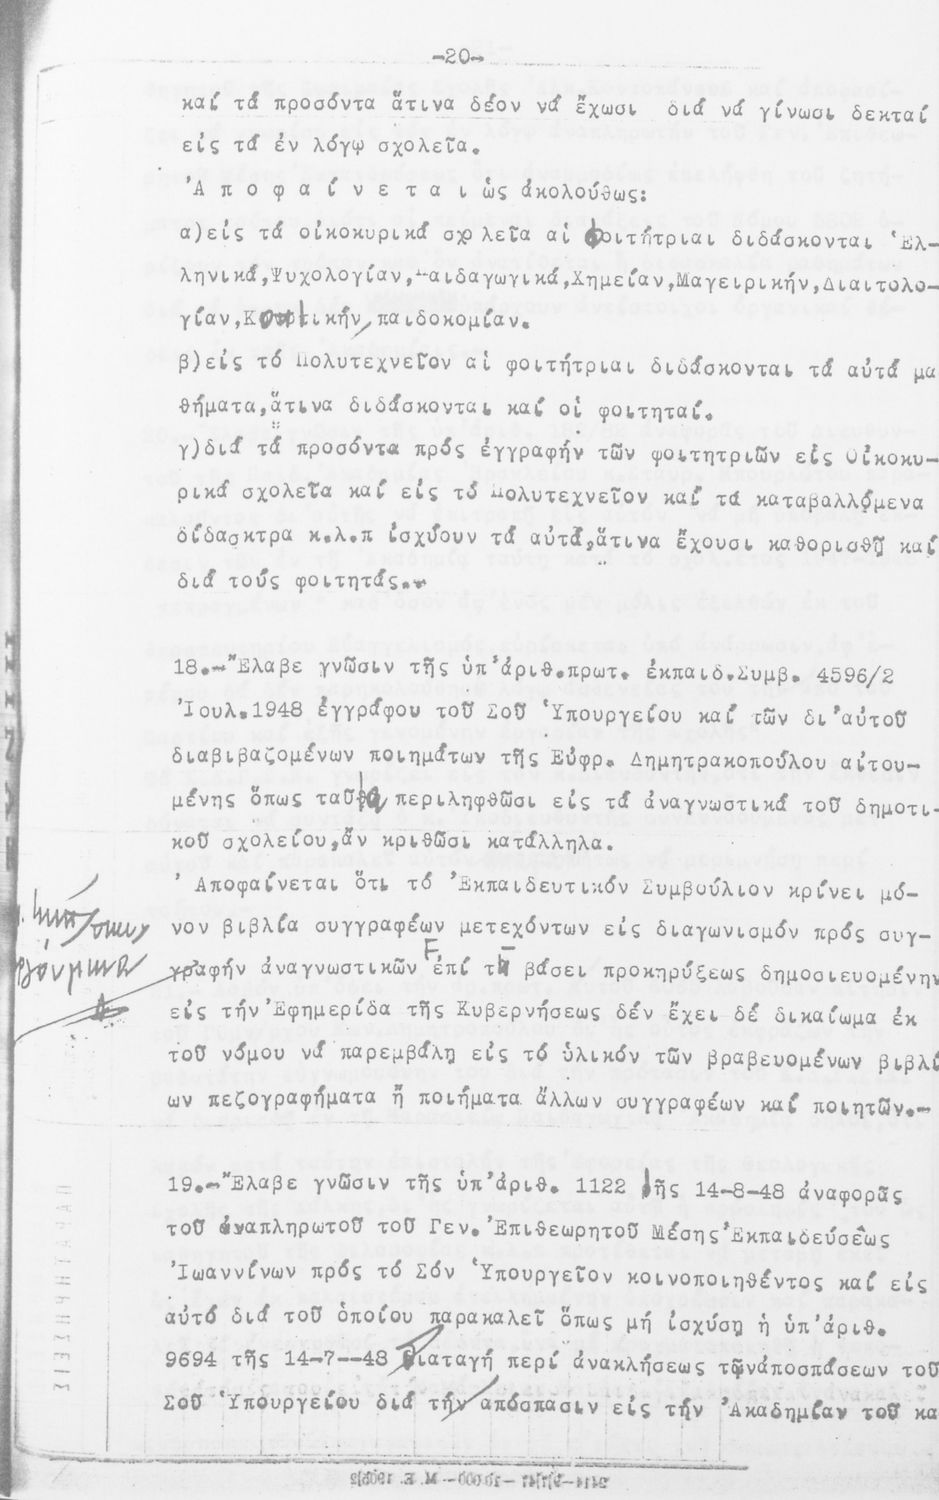 -20-
καί τά προσόντα ἅτινα δέον νά ἔχωσι διά νά γίνωσι δεκταί
εἰς τά ἐν λόγῳ σχολεῖα.
Ἀ π ο φ α ί ν ε τ α ι ὡς ἀκολούθως:
α)εἰς τά οἰκοκυρικά σχολεῖα αἱ φοιτήτριαι διδάσκονται Ἑλ-
ληνικά,Ψυχολογίαν,Παιδαγωγικά,Χημείαν,Μαγειρικήν,Διαιτολο-
γίαν,Κοπτικήν,παιδοκομίαν.
β)εἰς τό Πολυτεχνεῖον αἱ φοιτήτριαι διδάσκονται τά αὐτά μα
θήματα,ἅτινα διδάσκονται καί οἱ φοιτηταί.
γ)διά τά προσόντα πρός ἐγγραφήν τῶν φοιτητριῶν εἰς Οἰκοκυ-
ρικά σχολεῖα καί εἰς τό Πολυτεχνεῖον καί τά καταβαλλόμενα
δίδασκτρα κ.λ.π ἰσχύουν τά αὐτά,ἅτινα ἔχουσι καθορισθῇ καί
διά τούς φοιτητάς.-
18.-Ἔλαβε γνῶσιν τῆς ὑπ'ἀριθ.πρωτ. ἐκπαιδ.Συμβ. 4596/2
Ἰουλ.1948 ἐγγράφου τοῦ Σοῦ Ὑπουργείου καί τῶν δι'αὐτοῦ
διαβιβαζομένων ποιημάτων τῆς Εὐφρ. Δημητρακοπούλου αἰτου-
μένης ὅπως ταῦτα περιληφθῶσι εἰς τά ἀναγνωστικά τοῦ δημοτι-
κοῦ σχολείου,ἄν κριθῶσι κατάλληλα.
Ἀποφαίνεται ὅτι τό Ἐκπαιδευτικόν Συμβούλιον κρίνει μό-
νον βιβλία συγγραφέων μετεχόντων εἰς διαγωνισμόν πρός συγ-
γραφήν ἀναγνωστικῶν ἐπί τῇ βάσει προκηρύξεως δημοσιευομένην
εἰς τήν Ἐφημερίδα τῆς Κυβερνήσεως δέν ἔχει δέ δικαίωμα ἐκ
τοῦ νόμου νά παρεμβάλῃ εἰς τό ὑλικόν τῶν βραβευομένων βιβλί
ων πεζογραφήματα ἤ ποιήματα ἄλλων συγγραφέων καί ποιητῶν.-
19.-Ἔλαβε γνῶσιν τῆς ὑπ'ἀριθ. 1122 τῆς 14-8-48 ἀναφορᾶς
τοῦ ἀναπληρωτοῦ τοῦ Γεν. Ἐπιθεωρητοῦ Μέσης Ἐκπαιδεύσεως
Ἰωαννίνων πρός τό Σόν Ὑπουργεῖον κοινοποιηθέντος καί εἰς
αὐτό διά τοῦ ὁποίου παρακαλεῖ ὅπως μή ἰσχύσῃ ἡ ὑπ'ἀριθ.
9694 τῆς 14-7--48 διαταγή περί ἀνακλήσεως τῶν ἀποσπάσεων τοῦ
Σοῦ Ὑπουργείου διά τήν ἀπόσπασιν εἰς τήν Ἀκαδημίαν τοῦ κα